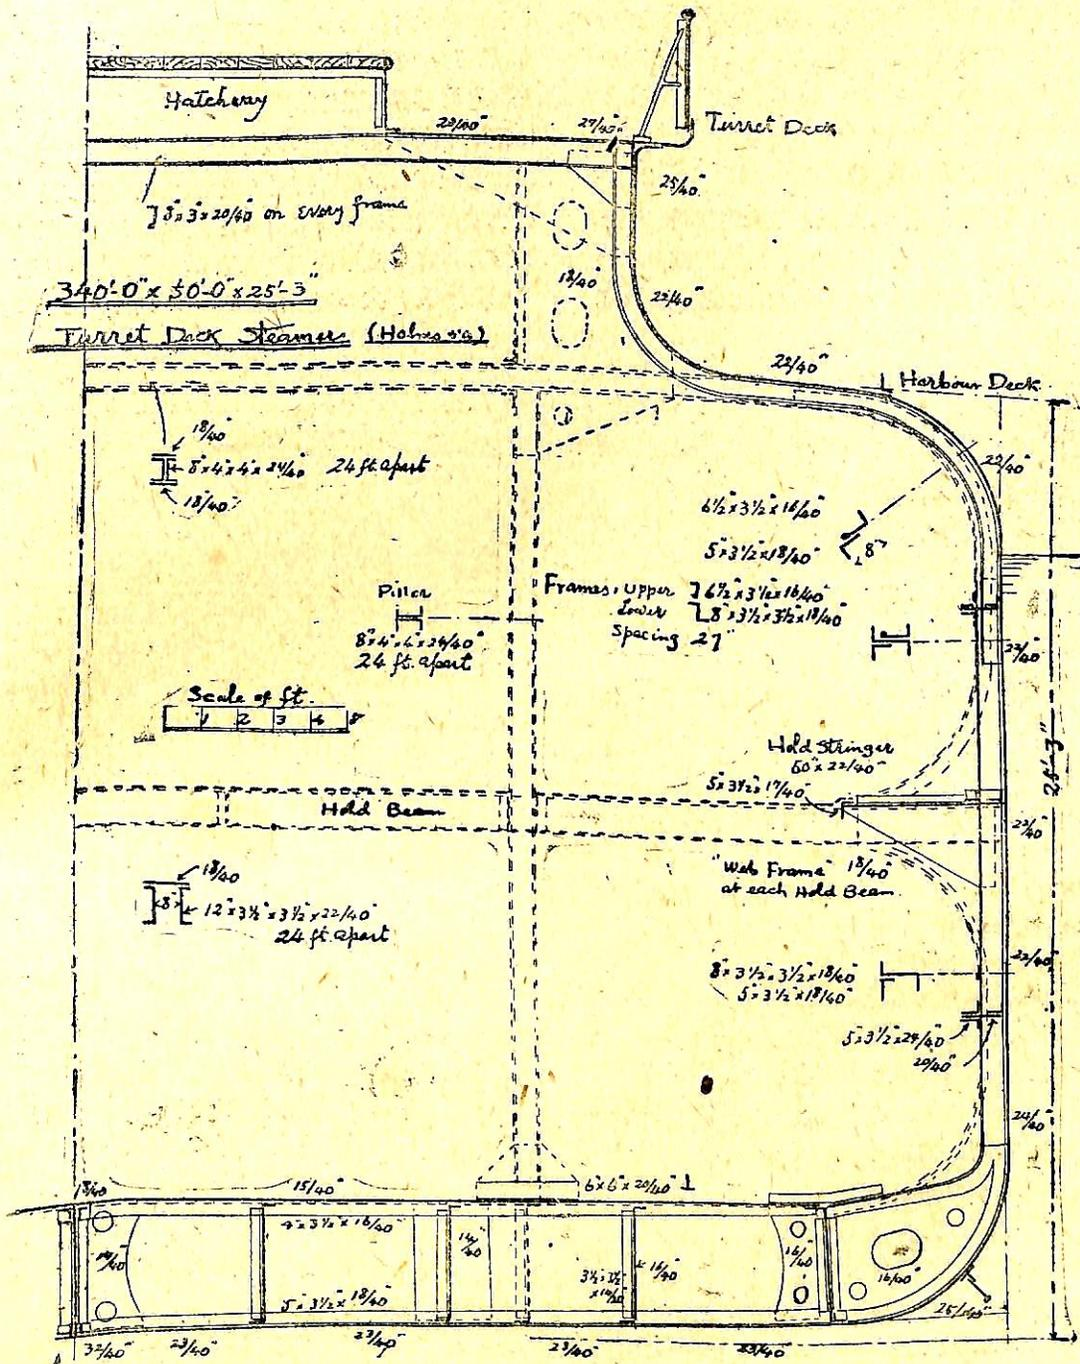 Hatchway
20/40"
27/40"
Turret Deck
25/40"
]8"x3"x20/40 on Every frame
18/40"
22/40"
340'-0" x 50'-0" x 25'-3"
Turret Deck Steamer (Holmes
22/40"
Harbour Deck.
18/40"
8"x4"x4"x24/40" 24 ft. apart
18/40"
22/40"
6½"x3½"x16/40"
5"x3½"x18/40"
8"
Pillar
8"x4"x4"x24/40"
24 ft. apart
Frames, Upper ]6½"x3½"x16/40"
Lower [8"x3½"x3½"x18/40"
Spacing 27"
22/40"
Scale of ft.
1 2 3 4 5
Hold Stringer
60"x22/40"
5"x3½"x17/40"
25'-3"
Hold Beam
22/40"
"Web Frame" 18/40"
at each Hold Beam.
18/40
8" 12"x3½"x3½"x22/40"
24 ft. apart
22/40"
8"x3½"x3½"x18/40"
5"x3½"x18/40"
5"x3½"x24/40"
20/40"
24/40"
18/40
15/40"
6"x6"x20/40" ⊥
4"x3½"x16/40"
14/40"
14/40
16/40"
16/40"
16/40"
3½"x3½"
5"x3½"x18/40"
25/40"
32/40"
23/40"
23/40"
23/40"
23/40"